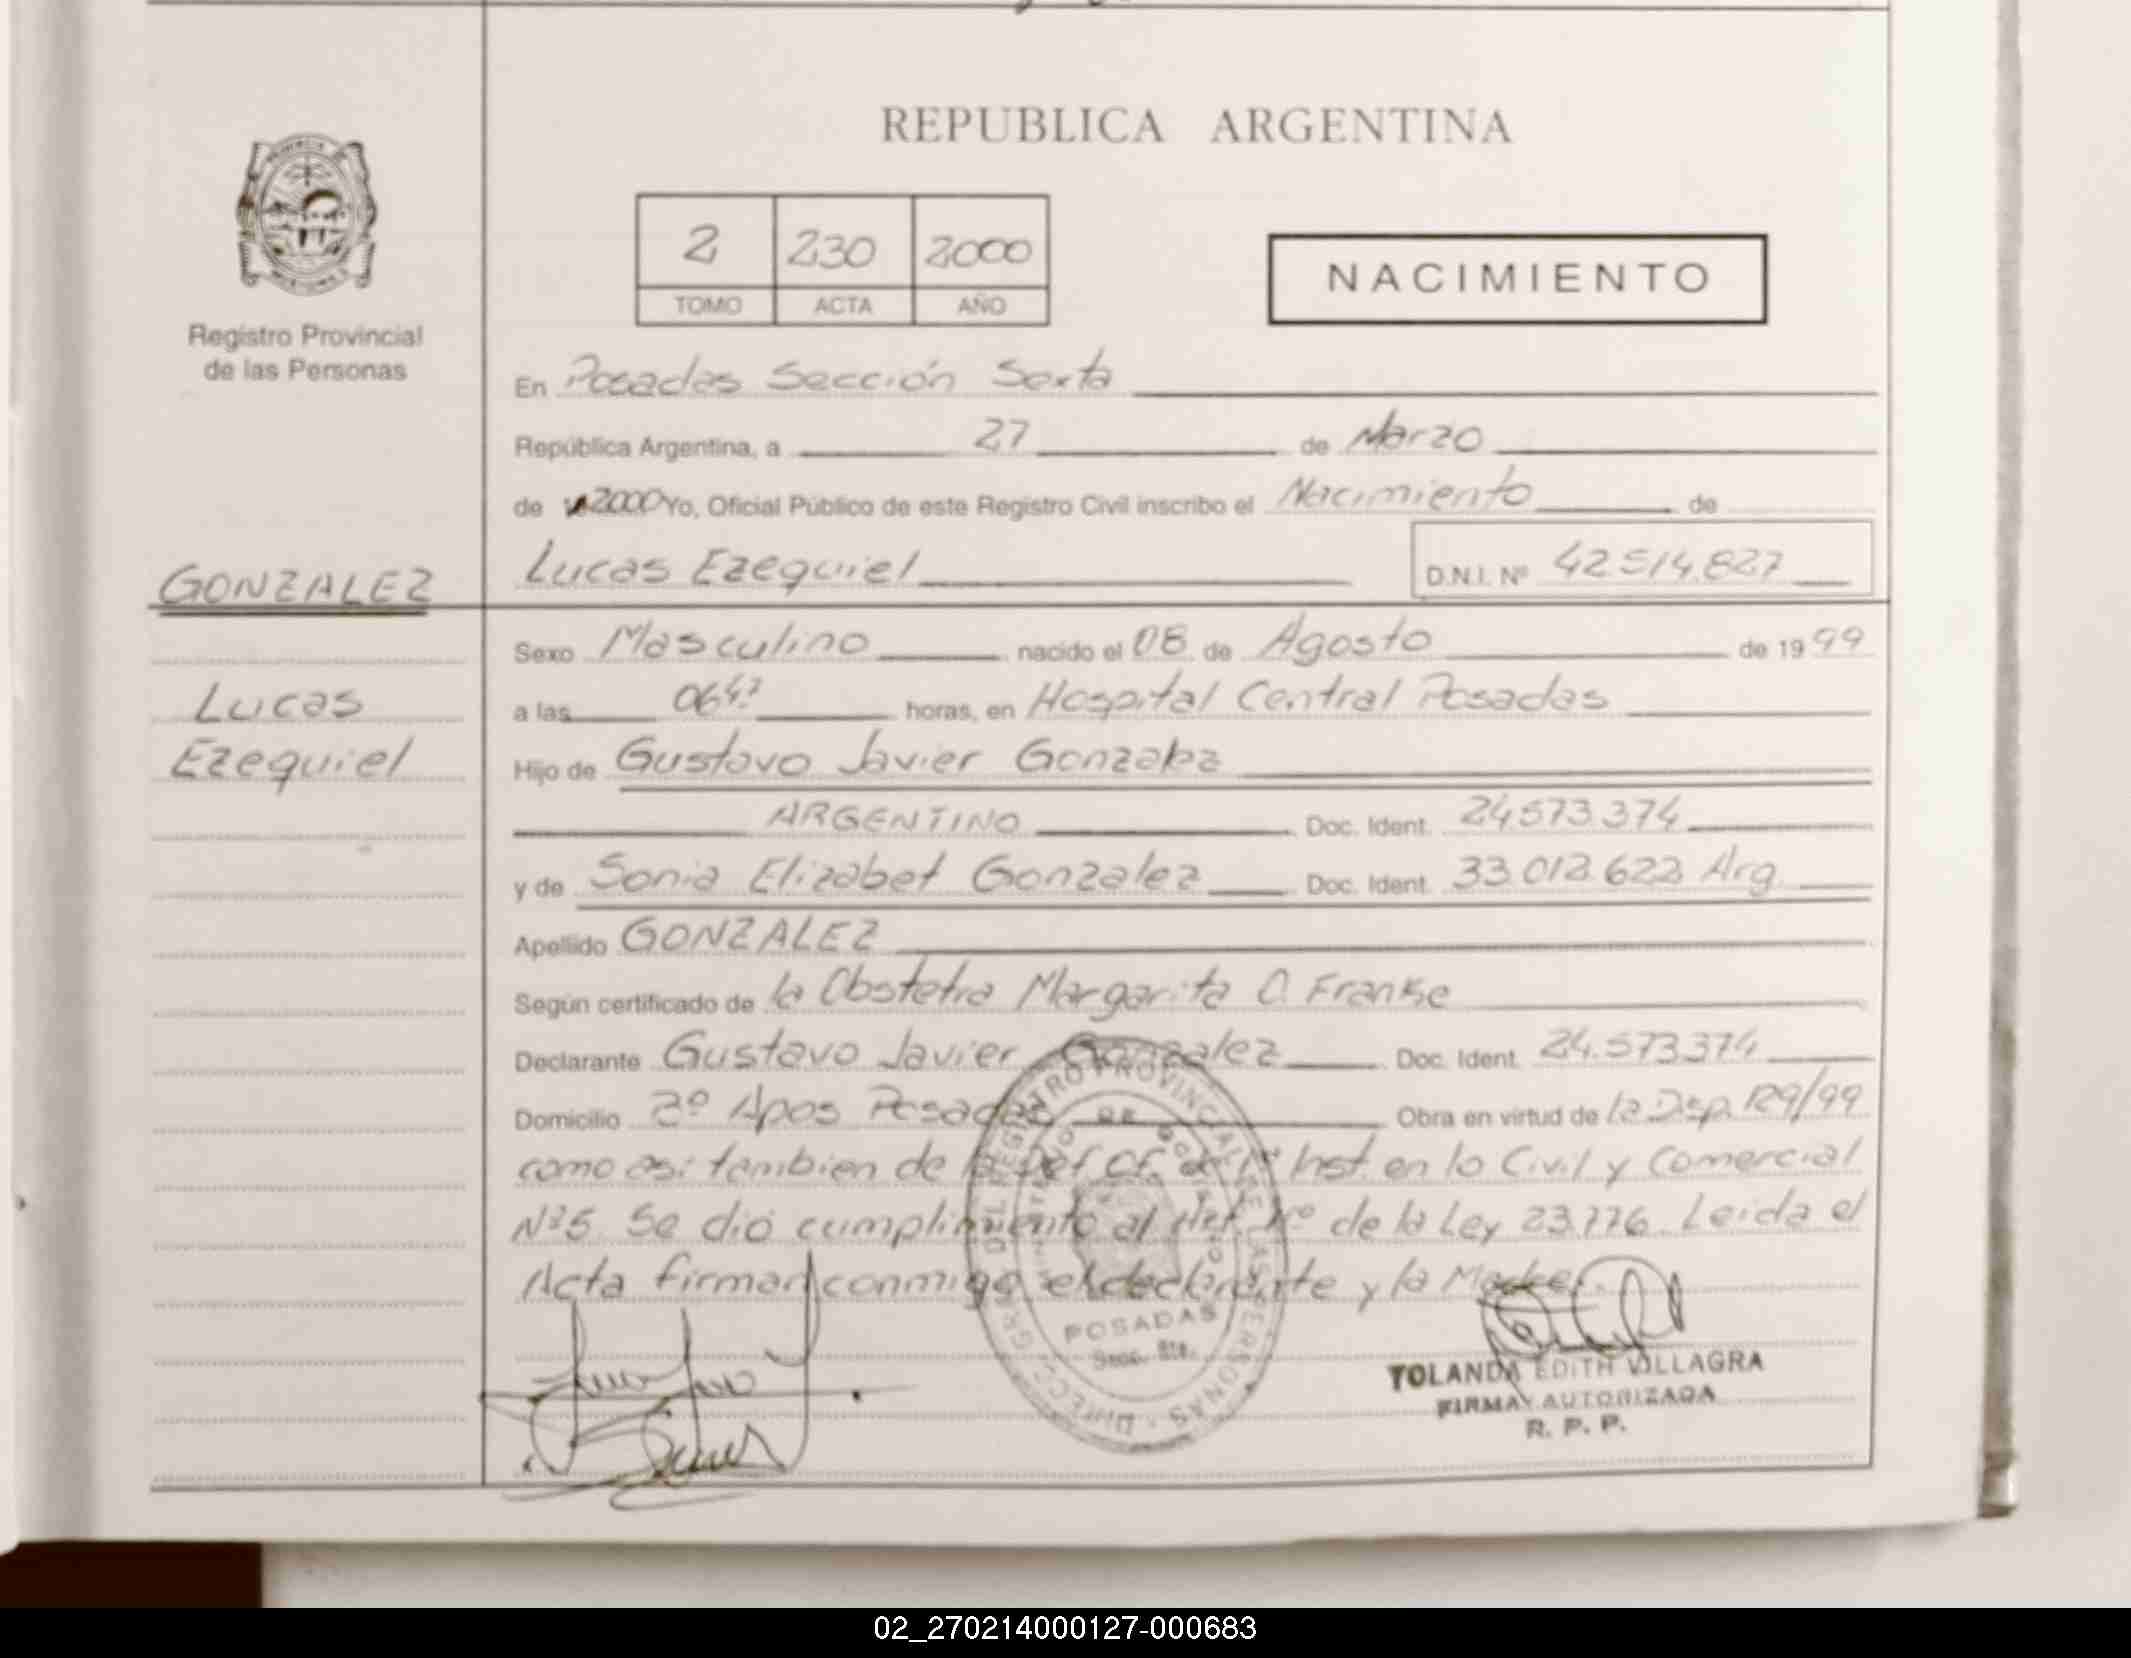 REPUBLICA ARGENTINA
2 230 2000
TOMO ACTA AÑO
NACIMIENTO
Registro Provincial
de las Personas
En Posadas Sección Sexta
República Argentina, a 27 de Marzo
de 2000 Yo, Oficial Público de este Registro Civil inscribo el Nacimiento de
GONZALEZ
Lucas Ezequiel D.N.I. Nº 42.514.827
Sexo Masculino nacido el 08 de Agosto de 1999
Lucas
a las horas, en Hospital Central Posadas
Ezequiel
Hijo de Gustavo Javier Gonzalez
ARGENTINO Doc. Ident. 24573374
y de Sonia Elizabet Gonzalez Doc. Ident. 33.012.622 Arg.
Apellido GONZALEZ
Según certificado de la Obstetra Margarita O. Franke
Declarante Gustavo Javier Gonzalez Doc. Ident. 24.573374
Domicilio Posadas Obra en virtud de la Disp. 129/99
como asi tambien de la Def. Of. de 1º Inst. en lo Civil y Comercial
Nº5. Se dió cumplimiento al de la Ley 23.776. Leida el
Acta firman conmigo el declarante y la Madre.
DEL REGISTRO PROVINCIAL DE LAS PERSONAS
POSADAS
Secc. 6ta.
YOLANDA EDITH VILLAGRA
FIRMA AUTORIZADA
R. P. P.
02_270214000127-000683